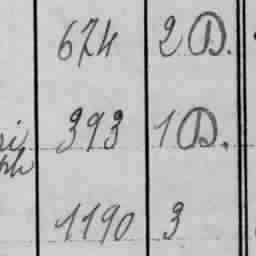 674 2 D.
393 1 D.
1190 3